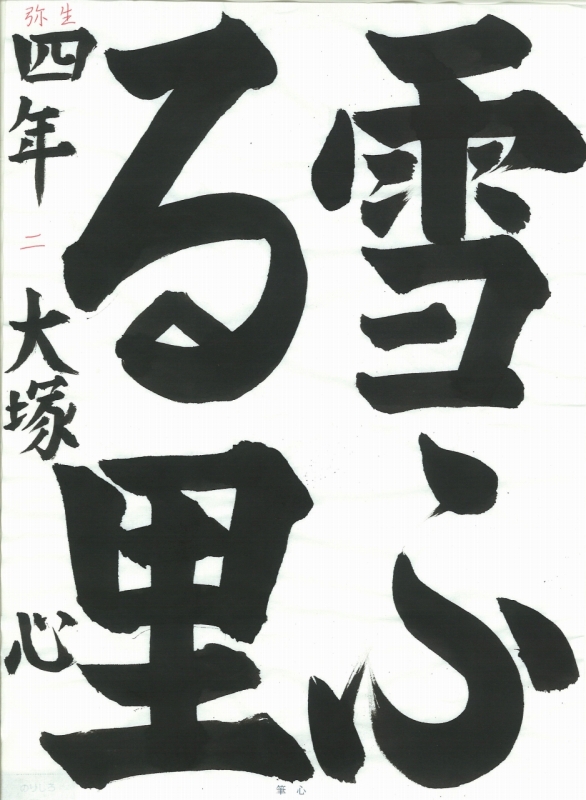 雪ふ
る里
弥生
四年 二 大塚 心
筆心
のりしろ